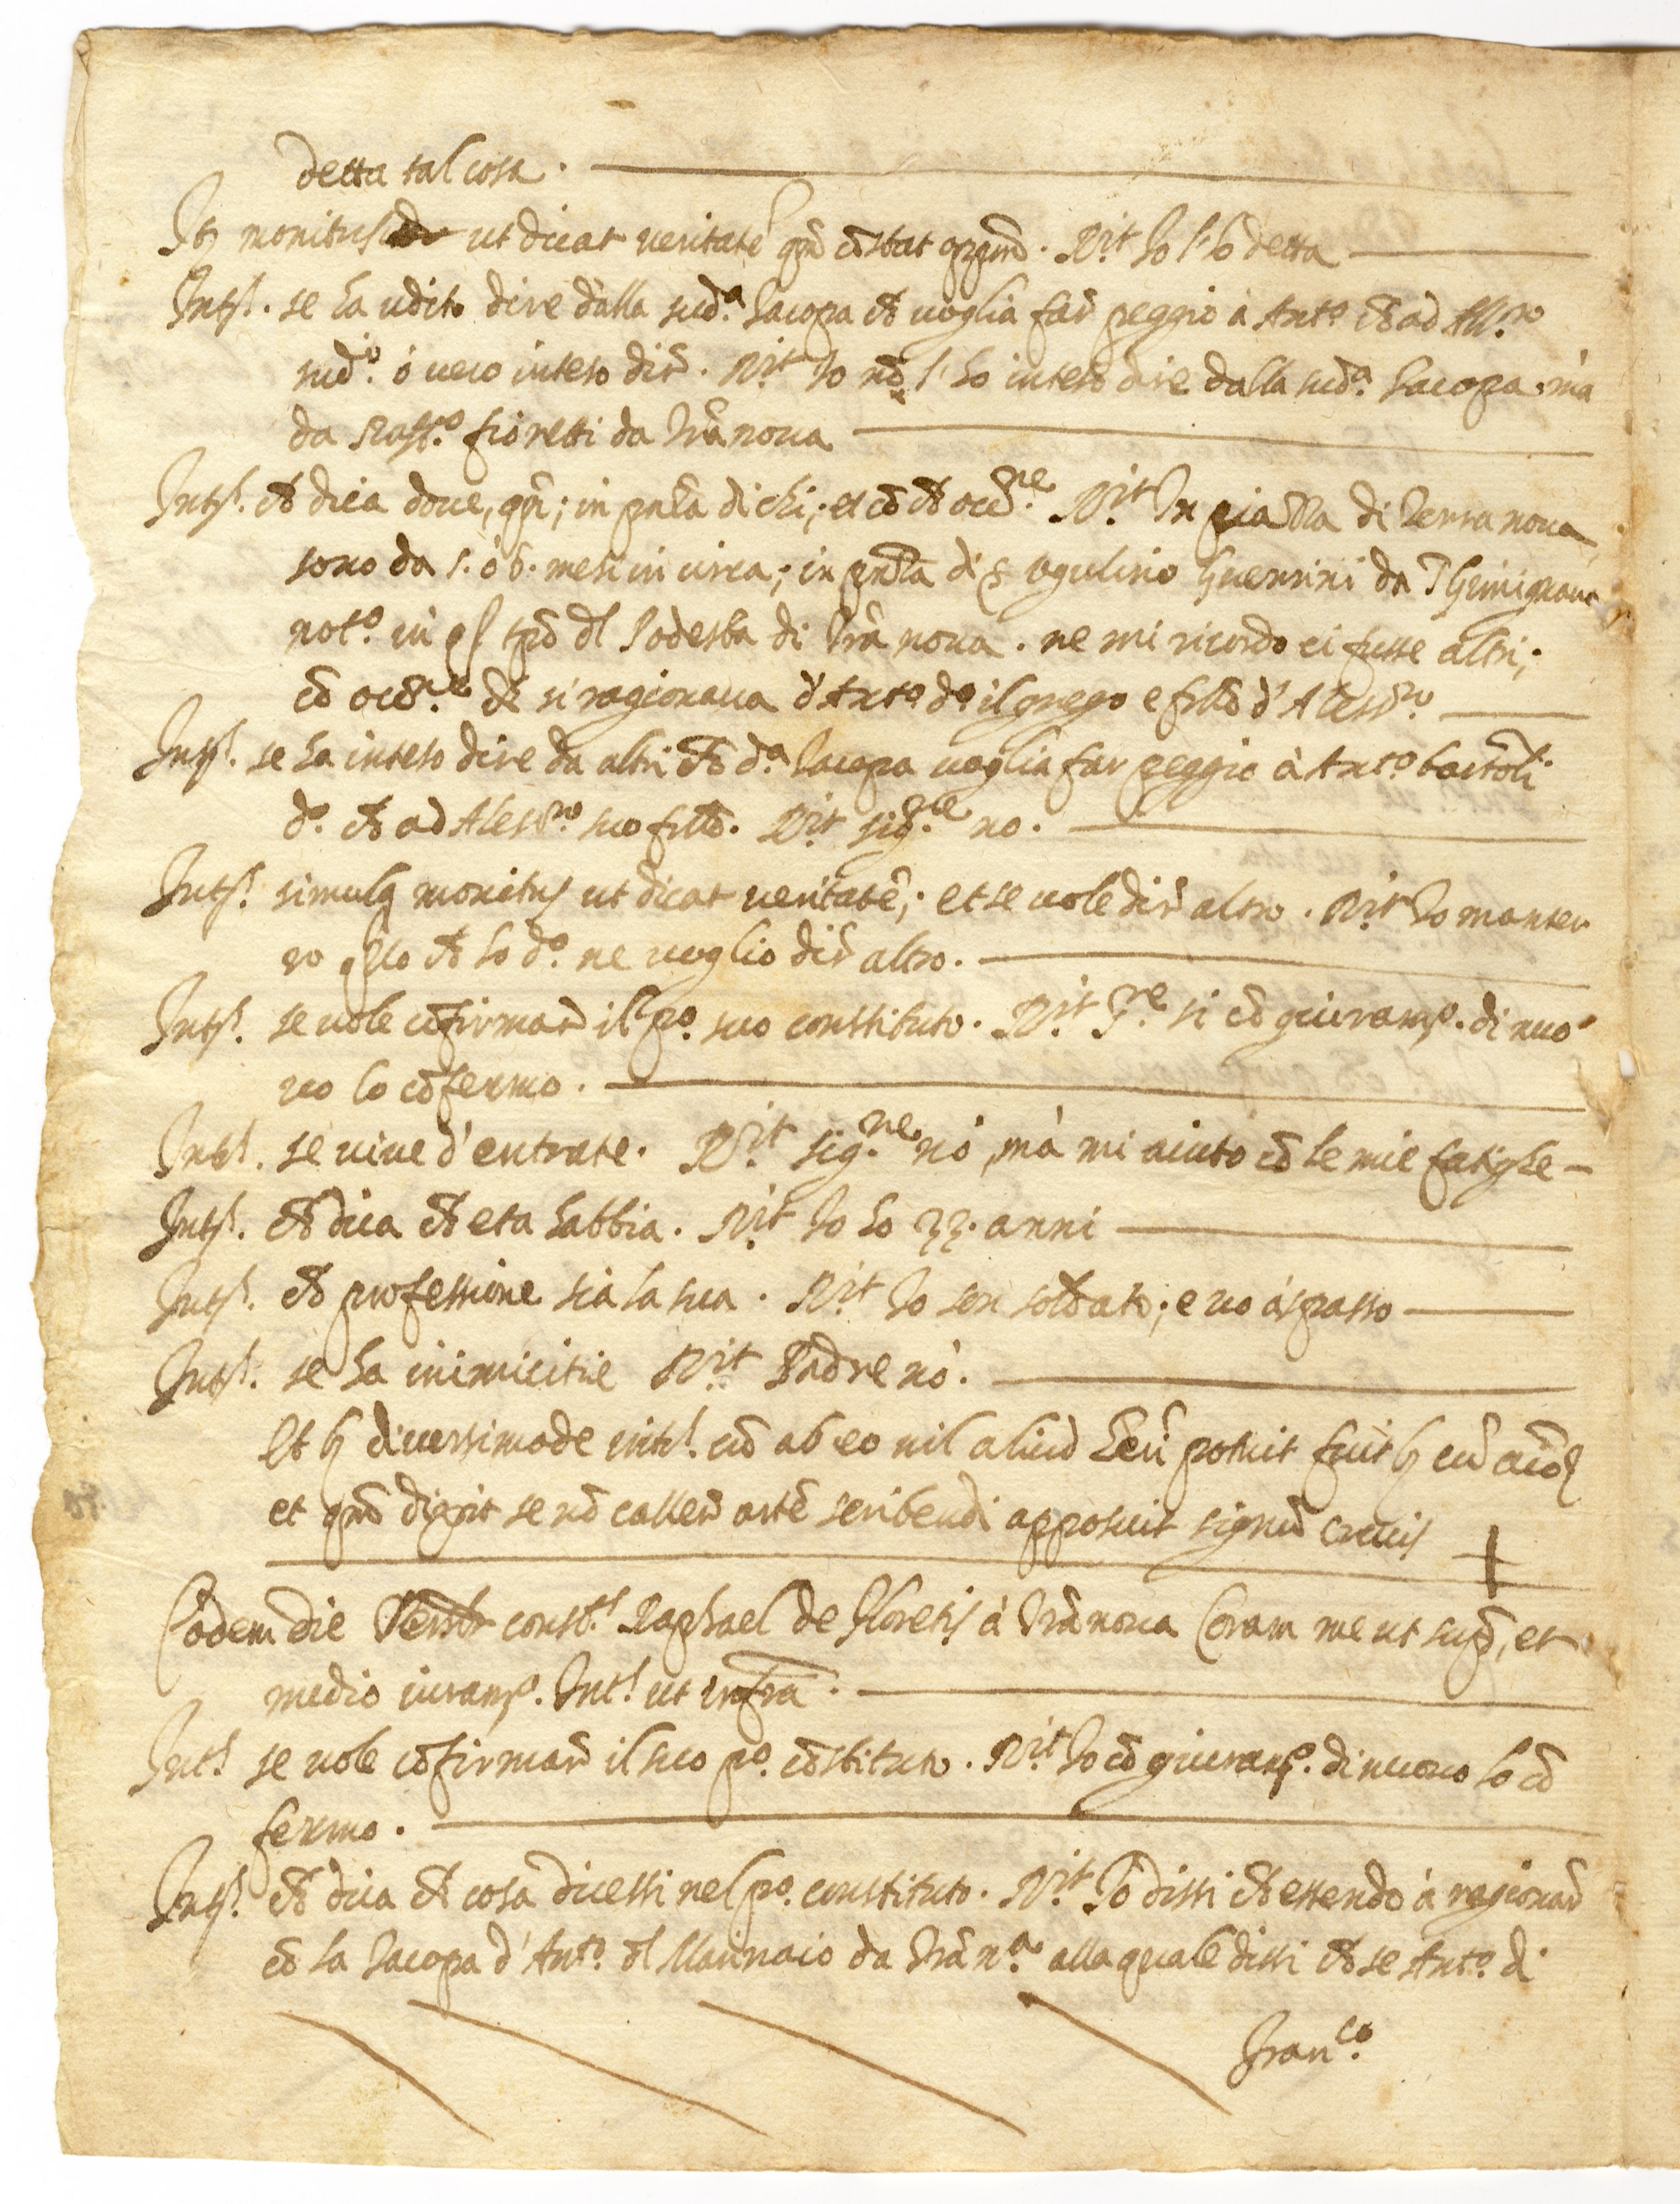 detta tal cosa.
It monitus ut dicat veritatē qm̄ cōstat oppm̄. Rit Io l'hò detta
Intſ. se ha udito dire dalla sudª Iacopa che voglia far peggio à Antº che ad Allro
sudº. ò vero inteso dir. Rit Io nō l'ho inteso dire dalla sudª Iacopa. mà
da Raffº fioretti da Trānova
Intſ. che dica dove, qn̄; in pn̄tia di chi; et cō che occne. Rit In piazza di Terranova
sono da 5. ò 6. mesi in circa; in pn̄tia di ser ugulino Guerrini da S Gimignano
notº in ql tpō dl Podesta di Trā nova. ne mi ricordo ci fusse altri;
cō occne che si ragionava d'Antº dº il prego e fillō d'Alessro
Intſ. se ha inteso dire da altri che dª Iacopa voglia far peggio à Antº bartoli
dº. che ad Alessro suo fillō. Rit sigre no.
Intſ. simulq monitus ut dicat veritatē; et se vole dir altro. Rit Io manten
go qllo che ho dº. ne voglio dir altro.
Intſ. se vole cōfirmar il pº. suo constituto. Rit Sre si cō giuramº. di nuo
vo lo cōfermo.
Intſ. se vive d'entrate. Rit sigre nò, mà mi aiuto cō le mie fatighe
Intſ. che dica che eta habbia. Rit Io ho 22. anni
Intſ. che professione sia la sua. Rit Io son soldato; e vo à spasso
Intſ. se ha inimicitie Rit Padre nò.
Et diversimode intſ. cū ab eo nil aliud potuit fuit
et qm̄ dixit se nō caller artē scribendi apposuit signū crucis +
Eodem die constſ. Raphael de floretis à Trānova Coram me ut supᵃ, et
medio iuramº. Intſ. ut infra.
Intſ se vole cōfirmar il suo pº. cōstituto. Rit Io cō giuramº. di nuovo lo cō
fermo.
Intſ. che dica che cosa dicessi nel pº. constituto. Rit Io dissi che essendo à ragionar
cō la Iacopa d'Antº. dl Marinaio da Trā nª. alla quale dissi che se Antº. di
Franco.